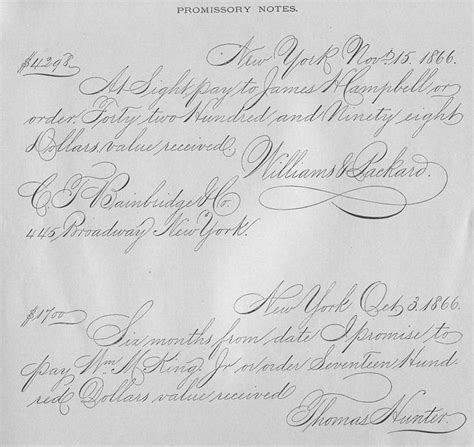 PROMISSORY NOTES.
$4298. New York Nov. 15. 1866.
At Sight pay to James H Campbell or
order Forty two Hundred and Ninety eight
Dollars, value received
Williams & Packard.
C. T. Bainbridge & Co.
445, Broadway New York.
$1700 New York Oct 3. 1866.
Six months from date I promise to
pay Wm M King, Jr or order Seventeen Hund
red Dollars value received
Thomas Hunter.